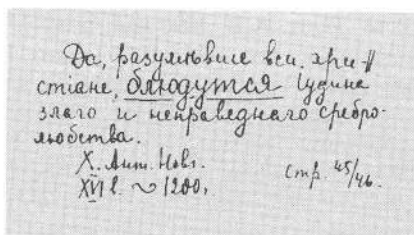 Да, разумѣвше вси хри-
стiане, блюдутся Iудина
злаго и неправеднаго сребро-
любства.
X. Ант. Новг.
XVI в. ~ 1200,
стр. 45/46.